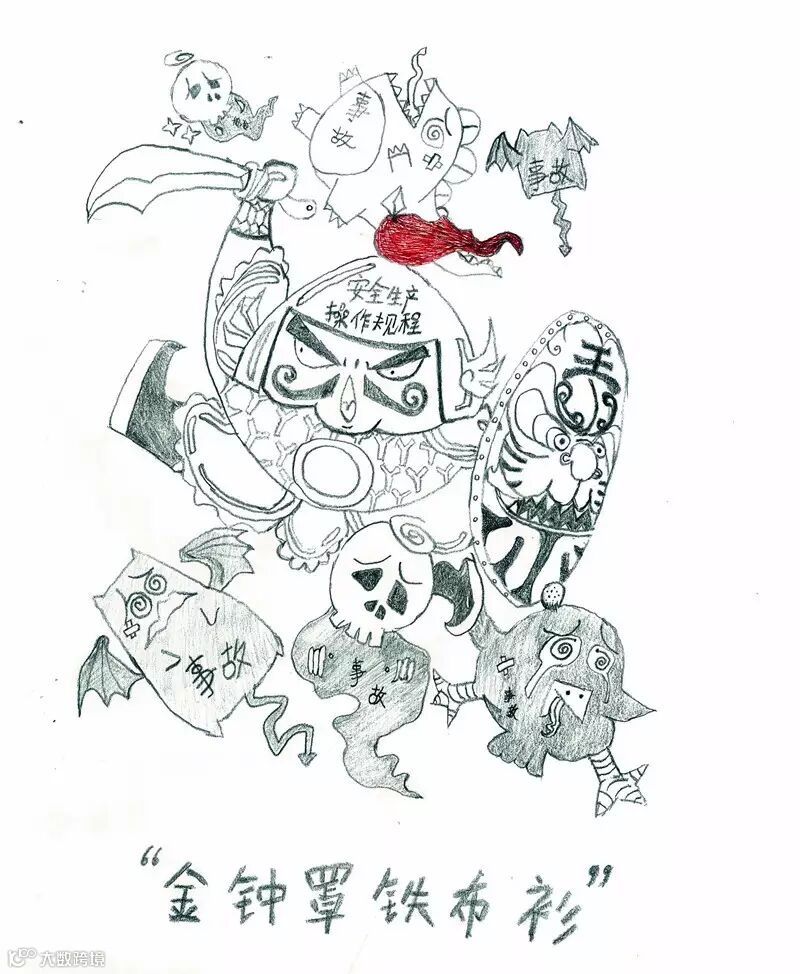 事故
事故
事故
安全生产
操作规程
王
事故
事故
事故
“金钟罩铁布衫”
大数跨境